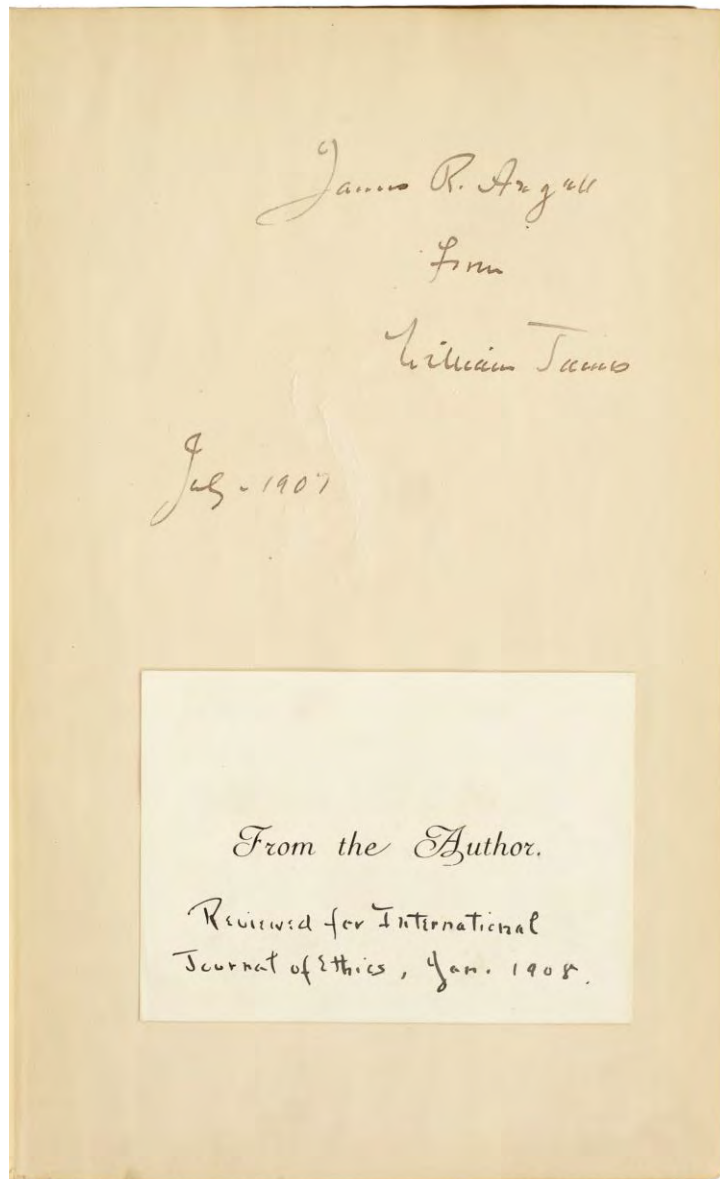 James R. Angell
from
William James
July - 1907
From the Author.
Reviewed for International
Journal of Ethics, Jan. 1908.